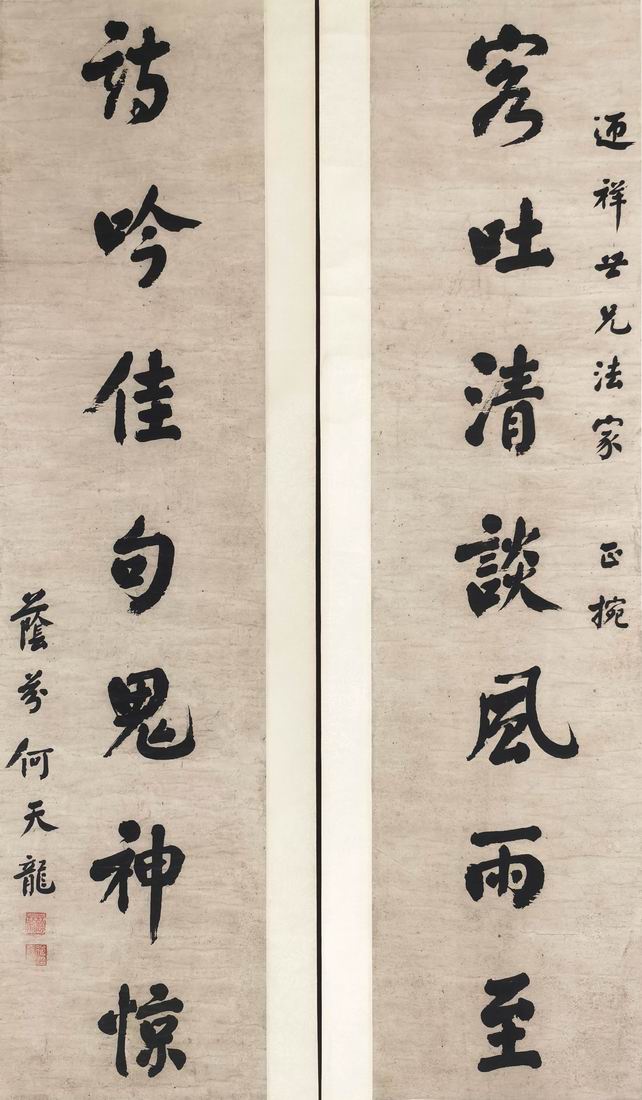 迺祥世兄法家 正捥
客吐清談風雨至
詩吟佳句鬼神惊
蔭芬何天龍